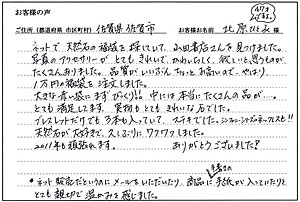 お客様の声
ご住所（都道府県 市区町村） 佐賀県 佐賀市 お客様お名前 北原 様
ネットで天然石の福袋を探していて、山田書店さんを見つけました。
写真のアクセサリーがとてもきれいで、かわいらしく、欲しいと思うものが
たくさんありました。品質がいいぶん、ちょっとお高いので、やはり、
1万円の福袋を注文しました。
大きな赤い袋にまずびっくり!! 中には本当にたくさんの品が…。
とても満足してます。実物もとてもきれいな石でした。
ブレスレットだけでも3本も入っていて、ステキでした。
天然石が大好きで、久しぶりにワクワクしました。
2011年も頑張れます。 ありがとうございました？
手書きの
・ネット販売だというのにメールをいただいたり、商品に手紙が入っていたりと
とても親切で温かみを感じました。